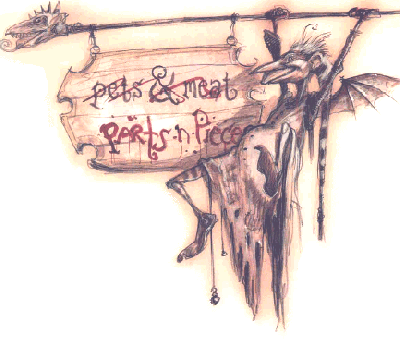 pets & meat
pärts ·n· Piece